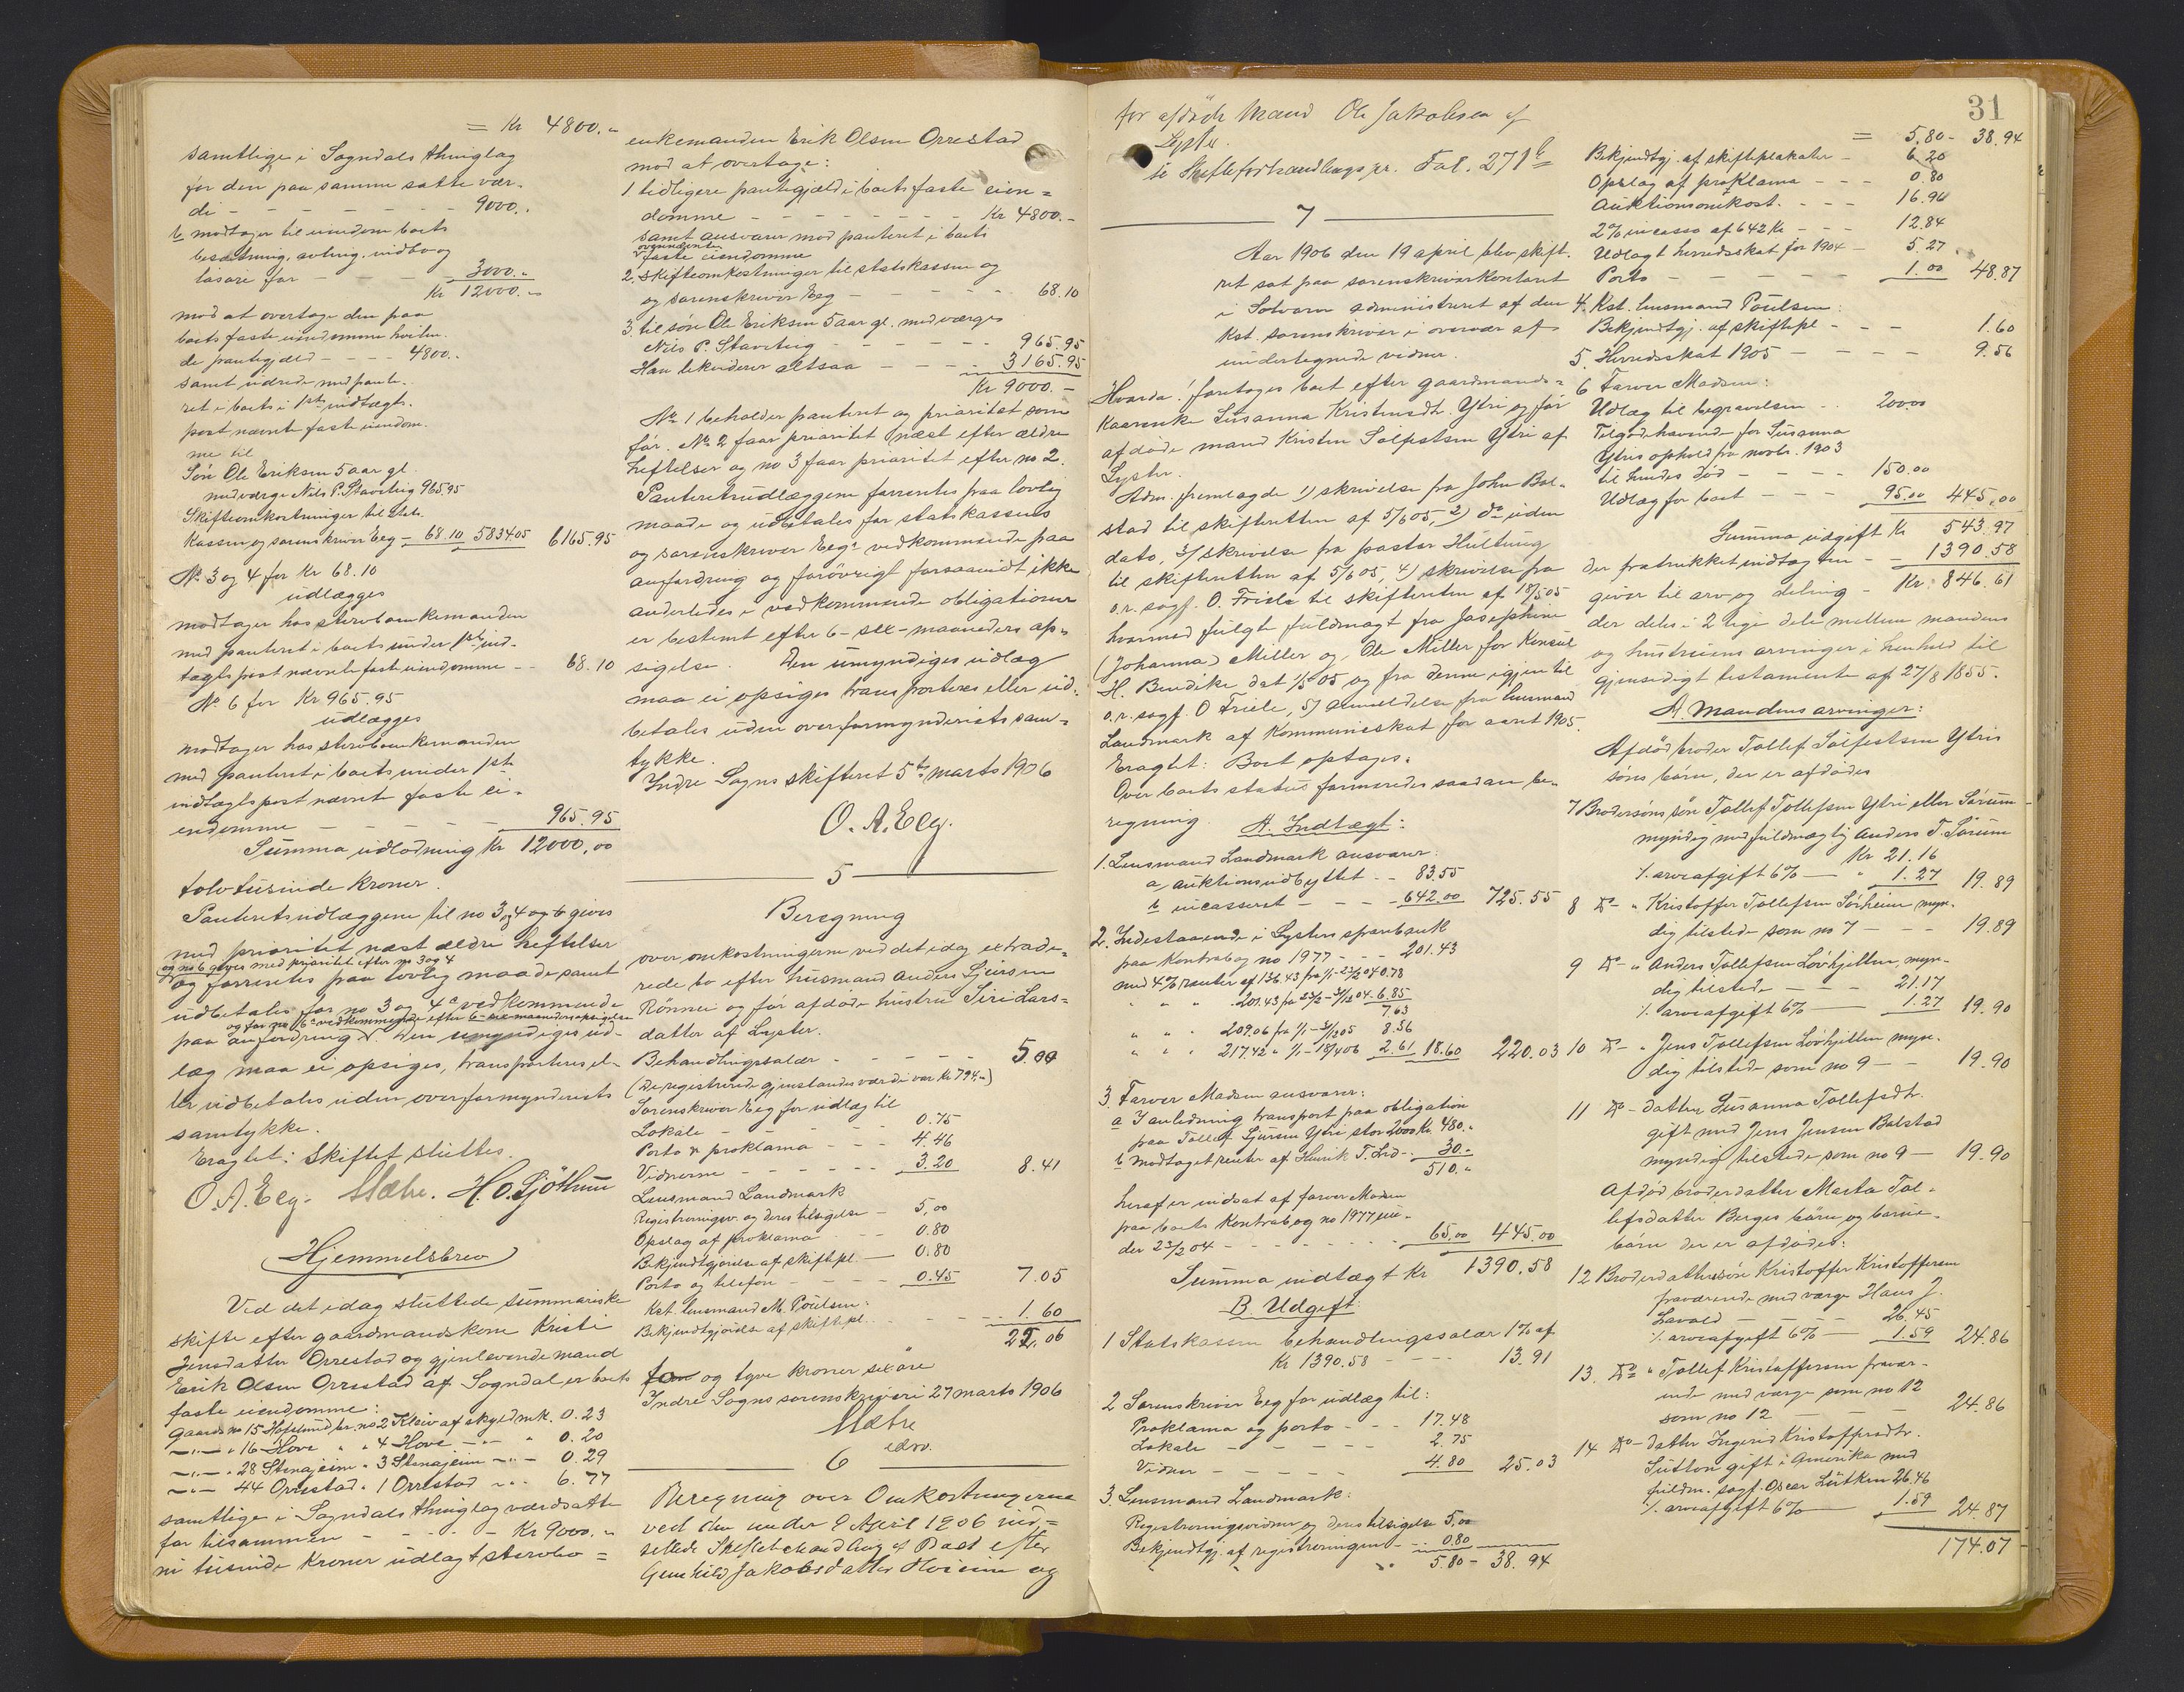 = Kr 4800.-
samtlige i Sogndals thinglag
for den paa samme satte vær-
di - - - - - - 9000.-
b modtager til eiendom boets
besætning, avling, indbo og
løsøre for - - - 3000.-
Kr 12000.-
mod at overtage den paa
boets faste eiendomme hvilen-
de pantegjæld - - - 4800.-
samt udrede med pante-
ret i boets i 1ste indtægts-
post nævnte faste eiendom-
me til
Søn Ole Eriksen 5 aar gl.
med værge Nils P. Staveteig 965.95
Skifteomkostninger til stats-
kassen og sorenskriver Eeg - 68.10 5834.05 6165.95
No. 3 og 4 for Kr 68.10
udlægges
modtager hos sterboenkemanden
med panteret i boets under 1ste ind-
tægtspost nævnte faste eiendomme - - 68.10
No. 6 for Kr 965.95
udlægges
modtager hos sterboenkemanden
med panteret i boets under 1ste
indtægtspost nævnte faste ei-
endomme - - - - 965.95
Summa udlodning Kr 12000,00
tolvtusinde kroner.
Panteretsudlæggene til no 3, 4 og 6 gives
med prioritet næst ældre heftelser
og no 6 gives med prioritet efter no 3 og 4
og forrentes paa lovlig maade samt
udbetales for no 3 og 4s vedkommende
og for no 6s vedkommende efter 6-sex maaneders opsigelse
paa anfordring. Den umyndiges ud-
læg maa ei opsiges, transporteres el-
ler udbetales uden overformynderiets
samtykke.
Eragtet: Skiftet sluttes.
O. A. Eeg. Mæhre. H. O. Gjöthun
Hjemmelsbrev
Ved det idag sluttede summariske
skifte efter gaardmandskone Kristi
Jensdatter Orrestad og gjenlevende mand
Erik Olsen Orrestad af Sogndal er boets
faste eiendomme:
Gaards no 15 Hofslund br. no 2 Kleiv af skyld mk. 0.23
-"- " 16 Hove " " 4 Hove -"- " 0.20
-"- " 28 Stenajeim " 3 Stenajeim -"- 0.29
-"- 44 Orrestad " 1 Orrestad -"- 6.77
samtlige i Sogndals thinglag værdsatte
for tilsammen - - - - Kr 9000.-
ni tusinde kroner udlagt sterbo=
enkemanden Erik Olsen Orrestad
mod at overtage:
1 tidligere pantegjæld i boets faste eien=
domme - - - - - - Kr 4800.-
samt ansvarer mod panteret i boets
ovennævnte
faste eiendomme
2. Skifteomkostninger til statskassen og
og sorenskriver Eeg - - - - - 68.10
3 til søn Ole Eriksen 5 aar gl. med værge
Nils P. Staveteig - - - - - 965.95
Han likviderer altsaa - - - - 3165.95
Kr 9000.-
No. 1 beholder panteret og prioritet som
før. No 2 faar prioritet næst efter ældre
heftelser og no 3 faar prioritet efter no 2.
Panteretsudlæggene forrentes paa lovlig
maade og udbetales for statskassens
og sorenskriver Eegs vedkommende paa
anfordring og forøvrigt forsaavidt ikke
anderledes i vedkommende obligationer
er bestemt efter 6-sex-maaneders op-
sigelse. Den umyndiges udlæg
maa ei opsiges transporteres eller ud-
betales uden overformynderiets sam-
tykke.
Indre Sogns skifteret 5te marts 1906
O. A. Eeg.
5
Beregning
over omkostningerne ved det idag extrade-
rede bo efter husmand Anders Sjursen
Rönnei og før afdøde hustru Siri Lars=
datter af Lyster.
Behandlingssalær - - - - - 5.00
(De registrerede gjenstandes værdi var Kr 794.-)
Sorenskriver Eeg for udlæg til
Lokale - - - - 0.75
Porto & proklama - - - 4.46
Vidnerne - - - - - 3.20 8.41
Lensmand Landmark
Registreringsv. og deres tilsigelse - 5,00
Opslag af proklama 0.80
Bekjendtgjørelse af skiftepl. - 0.80
Porto og telefon - - - - 0.45 7.05
Kst. lensmand M. Poulsen:
Bekjendtgjørelse af skiftepl. - - - 1.60
22,06
to og tyve kroner sex øre
Indre Sogns sorenskriveri 27 marts 1906
Mæhre
edsv.
6
Beregning over Omkostningerne
ved den under 9 April 1906 nid-
sluttede Skiftebehandling af Boet efter
Gunhild Jakobsdatter Hoieim og
31
for afdøde Mand Ole Jakobsen af
Lyster.
se Skifteforhandlingspr. Fol. 271b
7
Aar 1906 den 19 april blev skift-
ret sat paa sorenskriverkontoret
i Solvorn administreret af den
Kst. sorenskriver i overvær af
undertegnede vidner.
Hvorda! foretoges boet efter gaardmands-
kaarenke Susanna Kristensdt. Ytri og før
afdøde mand Kristen Solfestsen Ytri af
Lyster.
Adm. fremlagde 1) skrivelse fra John Bol-
stad til skifteretten af 5/6 05, 2) do uden
dato, 3) skrivelse fra pastor Hultung
til skifteretten af 5/6 05, 4) skrivelse fra
o.r. sagf. O. Friele til skifteretten af 18/5 05
hvormed fulgte fuldmagt fra Josephine
(Johanna) Miller og Ole Miller for Konsul
H. Bendike dat 1/5 05 og fra denne igjen til
o.r. sagf. O Friele, 5) anmeldelse fra lensmand
Landmark af Kommuneskat for aaret 1905.
Eragtet: Boet optages.
Over boets status formeredes saadan be-
regning. A. Indtægt:
1. Lensmand Landmark ansvarer:
a, auktionsudbyttet - - 83.55
b incasseret - - - 642.00 725.55
2. Indestaaende i Lysters sparebank
paa Kontrabog no 1977 - - - 201.43
med 4% renter af 136.43 fra 1/1-23/2 04 0.78
" " " 201.43 fra 23/2-31/12 04 6.85
7.63
" " " 209.06 fra 1/1-31/12 05 8.36
" " " 217.42 " 1/1-18/4 06 2.61 18.60 220.03
3. Farver Madsen ansvarer:
a I anledning transport paa obligation
paa Tollef Sjursen Ytri stor 2000 Kr. 480.-
b Modtaget renter af Henrik T. Lid - 30.-
510.-
heraf er indsat af farver Madsen
paa boets Kontrabog no 1977 un-
der 23/2 04 - - - - - - - 65.00 445.00
Summa indtægt Kr 1390.58
B. Udgift:
1 Statskassen behandlingssalær 1% af
Kr 1390.58 - - - - 13.91
2 Sorenskriver Eeg for udlæg til:
Proklama og porto - - - 17.48
Lokale - - - - - 2.75
Vidner - - - - - 4.80 25.03
3. Lensmand Landmark:
Registreringsvidner og deres tilsigelse 5,00
Bekjendtgj. af registreringen - - 0.80
5.80 - 38.94
= 5.80 - 38.94
Bekjendtgj. af skifteplakater - 6.20
Opslag af proklama - - - 0.80
Auktionsomkost. - - - 16.96
2% incasso af 642 Kr - - - 12.84
Udlagt herredsskat for 1904 - 5.27
Porto - - - - - - 1.00 48.87
4. Kst. lensmand Poulsen:
Bekjendtgj. af skiftepl - - - 1.60
5. Herredsskat 1905 - - - - 9.56
6 Farver Madsen:
Udlæg til begravelsen - - 200.00
Tilgodehavende for Susanna
Ytris ophold fra novbr. 1903
til hendes død - - - - 150.00
Udlæg for boet - - - 95.00 445,00
Summa udgift Kr 543.97
der fratrukket indtægten - - 1390.58
giver til arv og deling - Kr 846.61
der deles i 2 lige dele mellem mandens
og hustruens arvinger i henhold til
gjensidigt testamente af 27/8 1855.
A. Mandens arvinger:
Afdød broder Tollef Solfestsen Ytris
søns børn, der er afdødes
7 Brodersøns søn Tollef Tollefsen Ytri eller Sørum
myndig med fuldmægtig Anders T. Sørum
Kr 21.16
% arveafgift 6% - " 1.27 19.89
8 Do - " Kristoffer Tollefsen Sørheim myn-
dig tilstede som no 7 - - - 19.89
9 Do - " Anders Tollefsen Lövhjellen, myn-
dig tilstede - - - 21.17
% arveafgift 6% - 1.27 19.90
10 Do - " Jens Tollefsen Lövhjellen myn-
dig tilstede som no 9 - - 19.90
11 Do - datter Susanna Tollefsdtr.
gift med Jens Jensen Bolstad
myndig tilstede som no 9 - 19.90
Afdød broderdatter Marta Tol-
lefsdatter Berges børn og barne-
børn der er afdødes:
12 Broderdattersøn Kristoffer Kristoffersen
fraværende med værge Hans J.
Lavold - - - 26.45
% arveafgift 6% - 1.59 24.86
13. Do " Tollef Kristoffersen fravær-
ende med værge som no 12
som no 12 - - - 24.86
14 Do - datter Ingerid Kristoffersdtr.
Sutton gift i Amerika med
fuldm. sagf. Oscar Lütken 26.46
% arveafgift 6% - 1.59 24.87
174.07